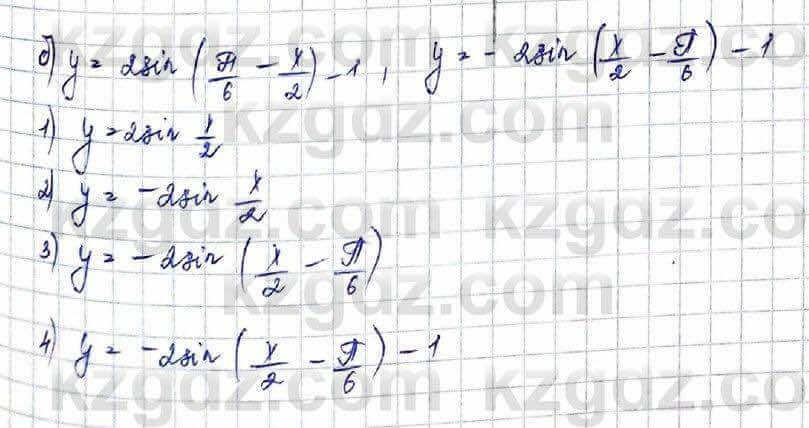 б) y = 2sin (π/6 - x/2) - 1, y = - 2sin (x/2 - π/6) - 1
1) y = 2sin x/2
2) y = -2sin x/2
3) y = -2sin (x/2 - π/6)
4) y = -2sin (x/2 - π/6) - 1
kzgdz.com
kzgdz.com kzgdz.co
kzgdz.com
kzgdz.com kzgdz.co
kzgdz.com
kzgdz.com kzgdz.co